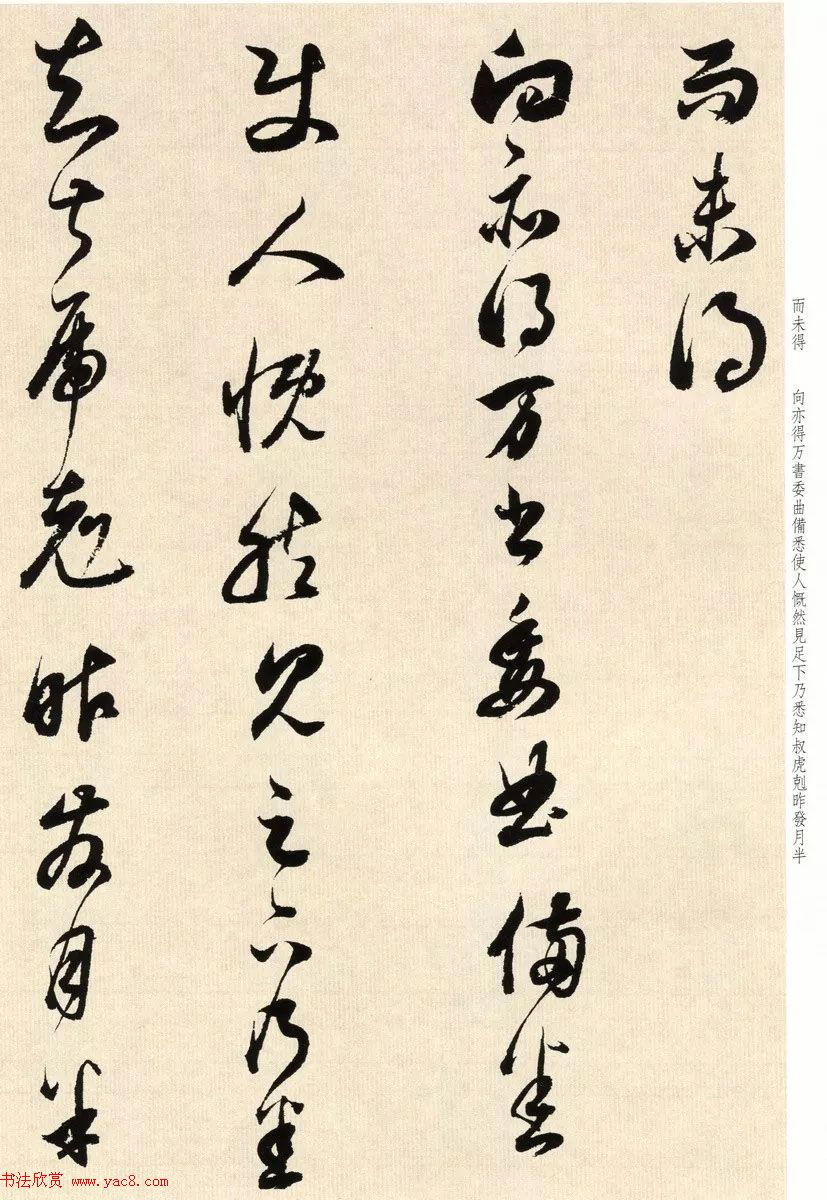 而未得
向亦得万书委曲備悉
使人慨然見足下乃悉
知叔虎剋昨發月半
而未得 向亦得万書委曲備悉使人慨然見足下乃悉知叔虎剋昨發月半
书法欣赏 www.yac8.com